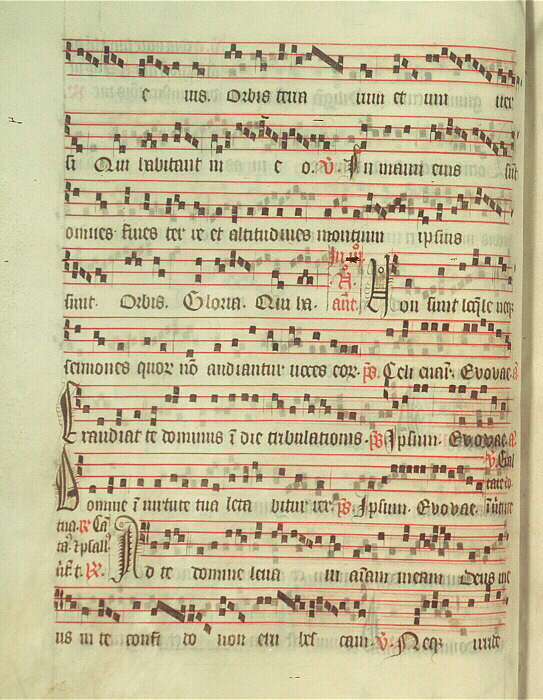 e ius. Orbis terra rum et uni ver
si Qui habitant in e o. V. In manu eius sūt
omnes fines ter re et altitudines montium ipsius
sunt. Orbis. Gloria. Qui ha. ant. Non sunt loq̄le neqȝ
sermones quor nō audiantur voces eor. ps. Celi enar. Evovae. a
Exaudiat te dominus ī die tribulationis. ps Ipsum. Evovae. a
Domine ī virtute tua leta bitur rex. ps. Ipsum. Evovae.
Ad te domine leva vi aīam meam Deus me
us in te confi do non eru bes cam. V. Neqȝ irride